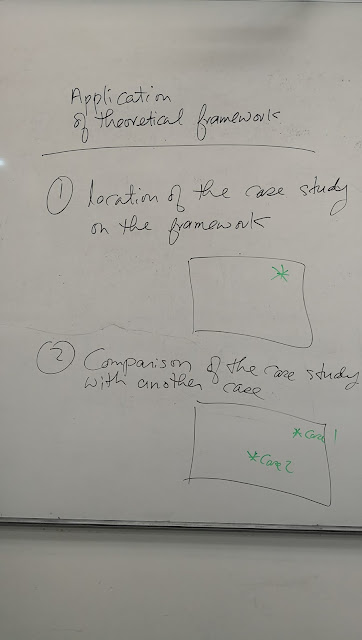 Application
of theoretical framework
① location of the case study
on the framework
*
② Comparison of the case study
with another case.
* Case 1
* Case 2